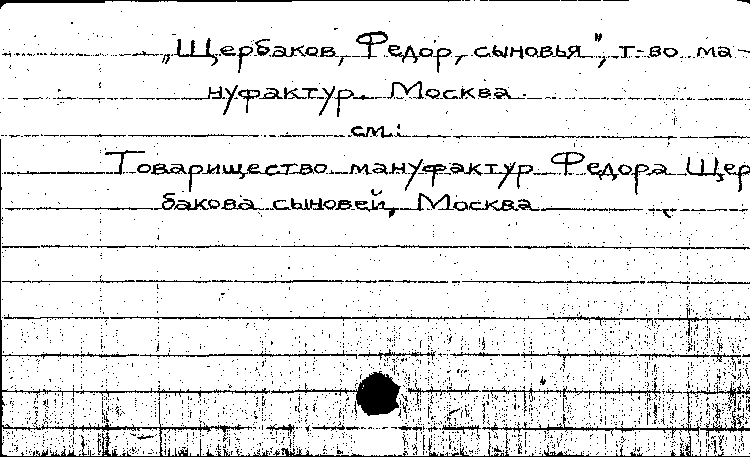 „Щербаков, Федор, сыновья", т-во ма-
нуфактур. Москва.
см.:
Товарищество мануфактур Федора Щер
бакова сыновей, Москва